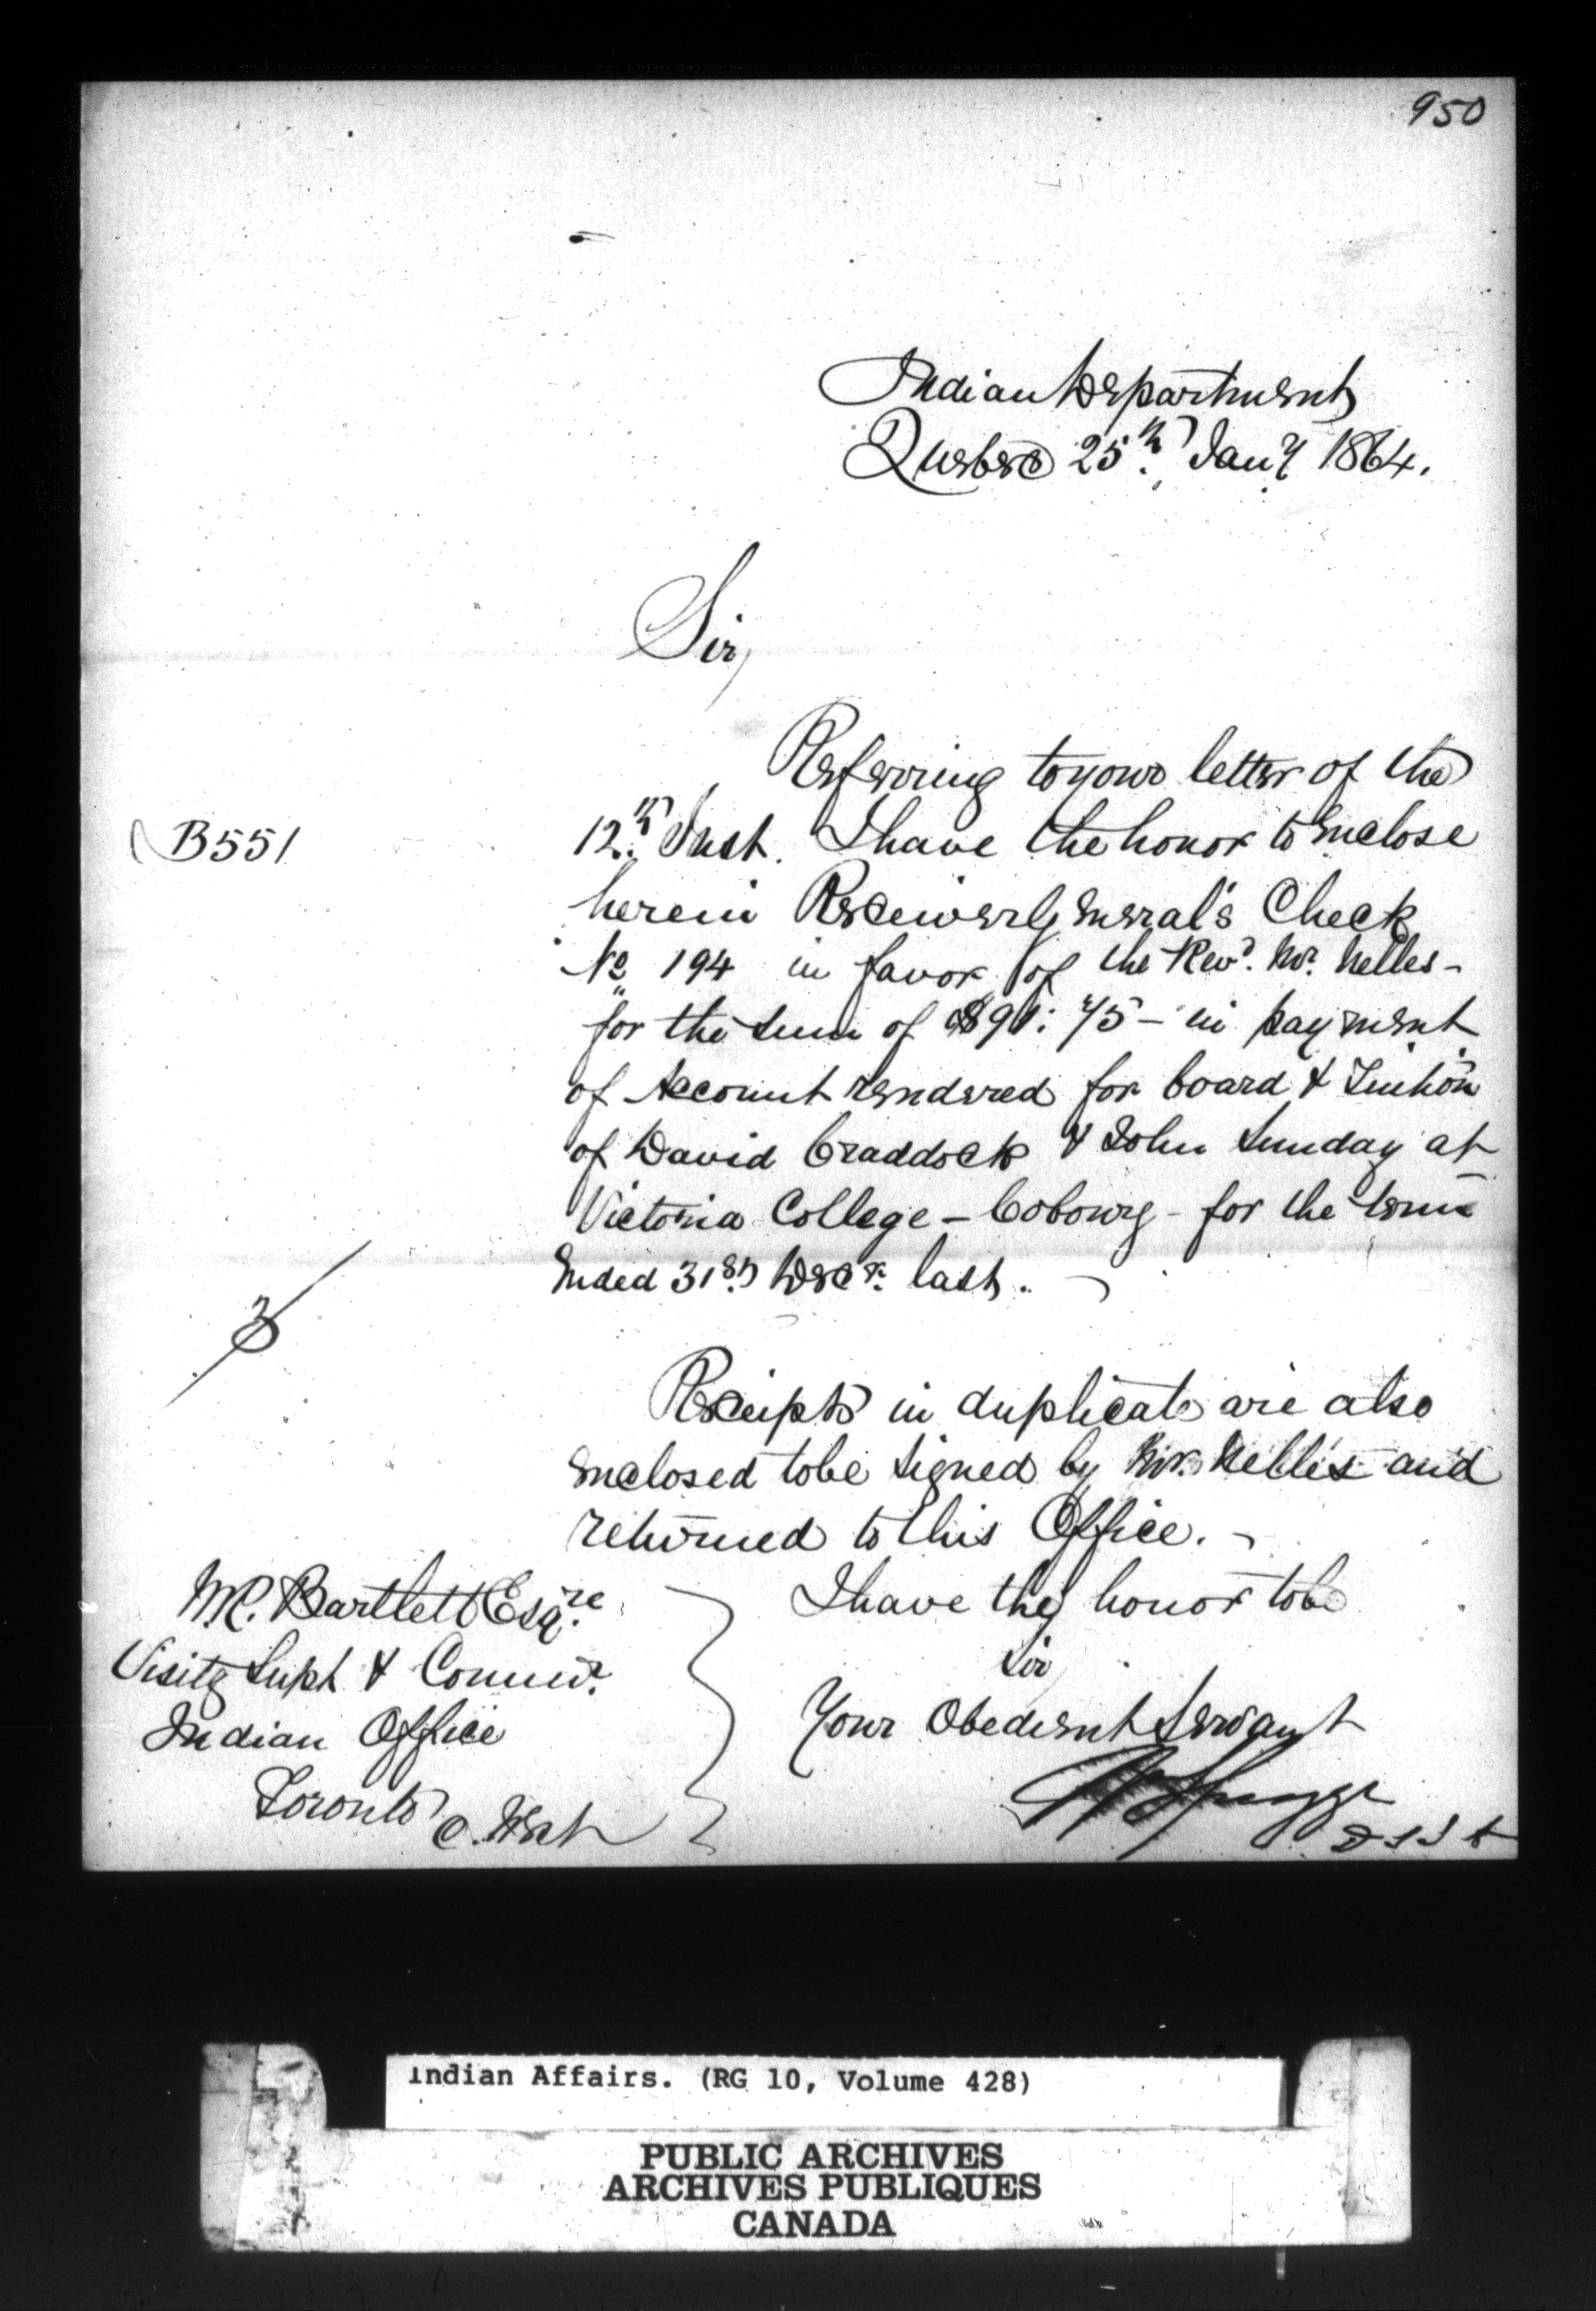 950
Indian Department
Quebec 25th. Jany 1864.
Sir,
Referring to your letter of the
B551
12th. Inst. I have the honor to enclose
herein Receiver General's Check
No 194 in favor of the Revd. Mr. Nelles -
for the sum of $91: 75 - in payment
of Account rendered for board & Tuition
of David Craddock & John Sunday at
Victoria College - Cobourg - for the term
Ended 31st. Decr. last.
3
Receipts in duplicate are also
enclosed to be signed by Mr. Nelles and
returned to this Office. -
I have the honor to be
Sir
Your Obedient Servant
W Spragge
D S I A
M. Bartlett Esqre.
Visitg Supt & Commr.
Indian Office
Toronto C. West
Indian Affairs. (RG 10, Volume 428)
PUBLIC ARCHIVES
ARCHIVES PUBLIQUES
CANADA